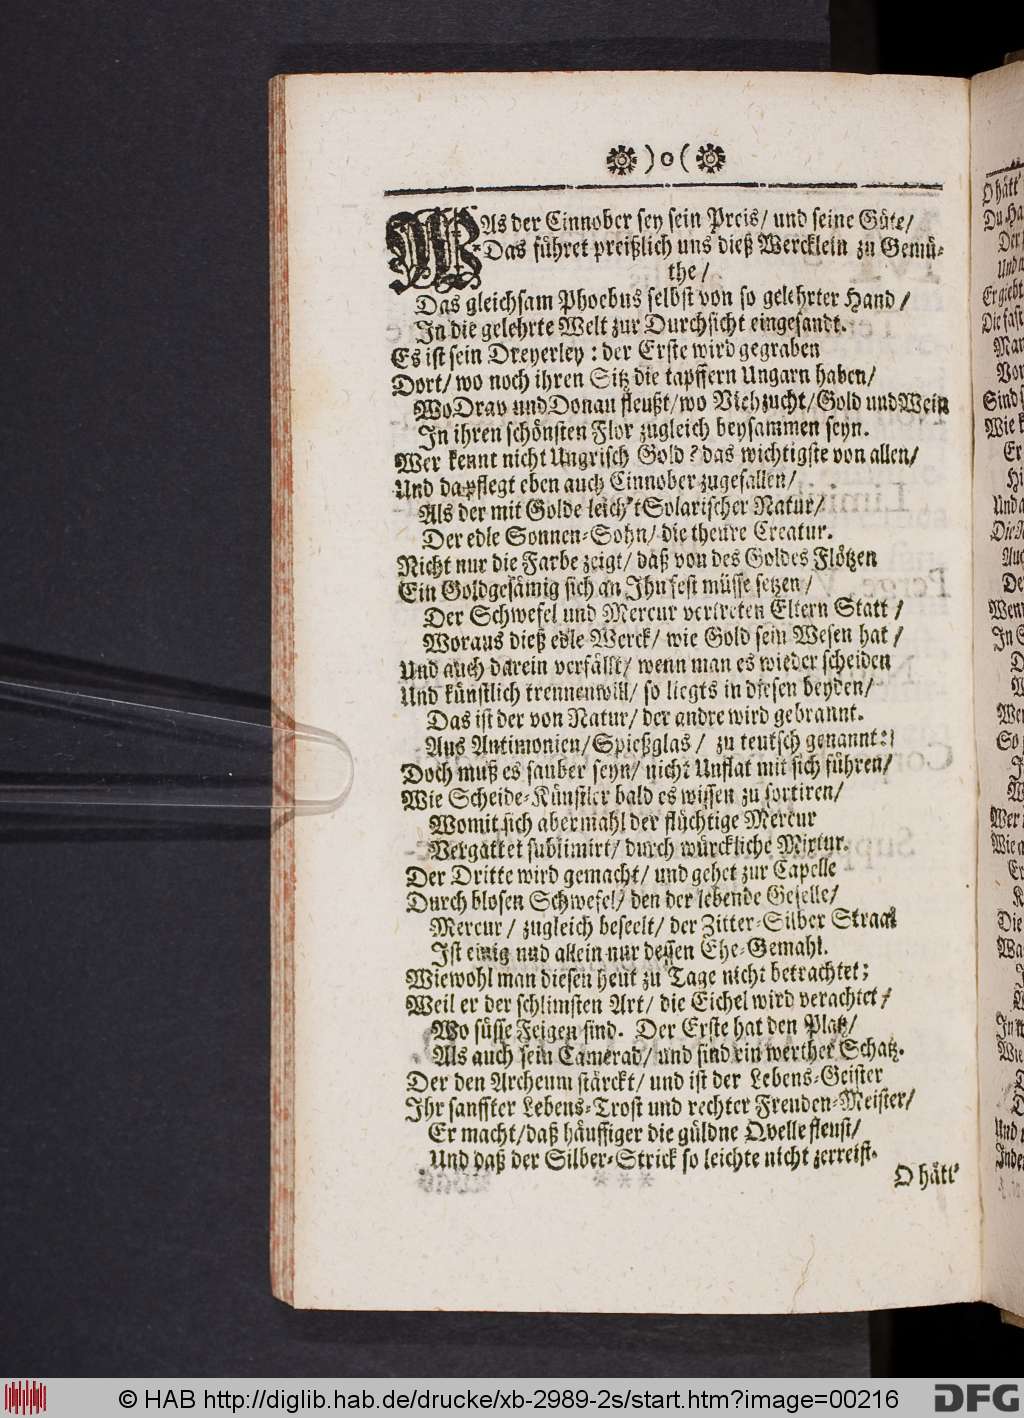 )o(
WAs der Cinnober sey sein Preis/ und seine Güte/
Das führet preißlich uns dieß Wercklein zu Gemü-
the/
Das gleichsam Phoebus selbst von so gelehrter Hand/
In die gelehrte Welt zur Durchsicht eingesandt.
Es ist sein Dreyerley: der Erste wird gegraben
Dort/ wo noch ihren Sitz die tapffern Ungarn haben/
Wo Drav und Donau fleußt/ wo Viehzucht/ Gold und Wein
In ihren schönsten Flor zugleich beysammen seyn.
Wer kennt nicht Ungrisch Gold? das wichtigste von allen/
Und da pflegt eben auch Cinnober zugefallen/
Als der mit Golde leich't Solarischer Natur/
Der edle Sonnen-Sohn/ die theure Creatur.
Nicht nur die Farbe zeigt/ daß von des Goldes Flötzen
Ein Goldgesämig sich an Ihn fest müsse setzen/
Der Schwefel und Mercur vertreten Eltern Statt/
Woraus dieß edle Werck/ wie Gold sein Wesen hat/
Und auch darein verfällt/ wenn man es wieder scheiden
Und künstlich trennen will/ so liegts in diesen beyden/
Das ist der von Natur/ der andre wird gebrannt.
Aus Antimonien/ Spießglas/ zu teutsch genannt:
Doch muß es sauber seyn/ nicht Unflat mit sich führen/
Wie Scheide-Künstler bald es wissen zu sortiren/
Womit sich abermahl der flüchtige Mercur
Vergattet sublimirt/ durch würckliche Mixtur.
Der Dritte wird gemacht/ und gehet zur Capelle
Durch blosen Schwefel/ den der lebende Geselle/
Mercur/ zugleich beseelt/ der Zitter-Silber Straal
Ist einig und allein nur dessen Ehe-Gemahl.
Wiewohl man diesen heut zu Tage nicht betrachtet;
Weil er der schlimsten Art/ die Eichel wird verachtet/
Wo süsse Feigen sind. Der Erste hat den Platz/
Als auch sein Camerad/ und sind ein werther Schatz.
Der den Archeum stärckt/ und ist der Lebens-Geister
Ihr sanffter Lebens-Trost und rechter Freuden-Meister/
Er macht/ daß häuffiger die güldne Qvelle fleust/
Und daß der Silber-Strick so leichte nicht zerreist.
O hätt'
O hätt'
Und
Die fast
Sind
Wie
Und
In
Wer
Die
Wie
Und
© HAB http://diglib.hab.de/drucke/xb-2989-2s/start.htm?image=00216
DFG